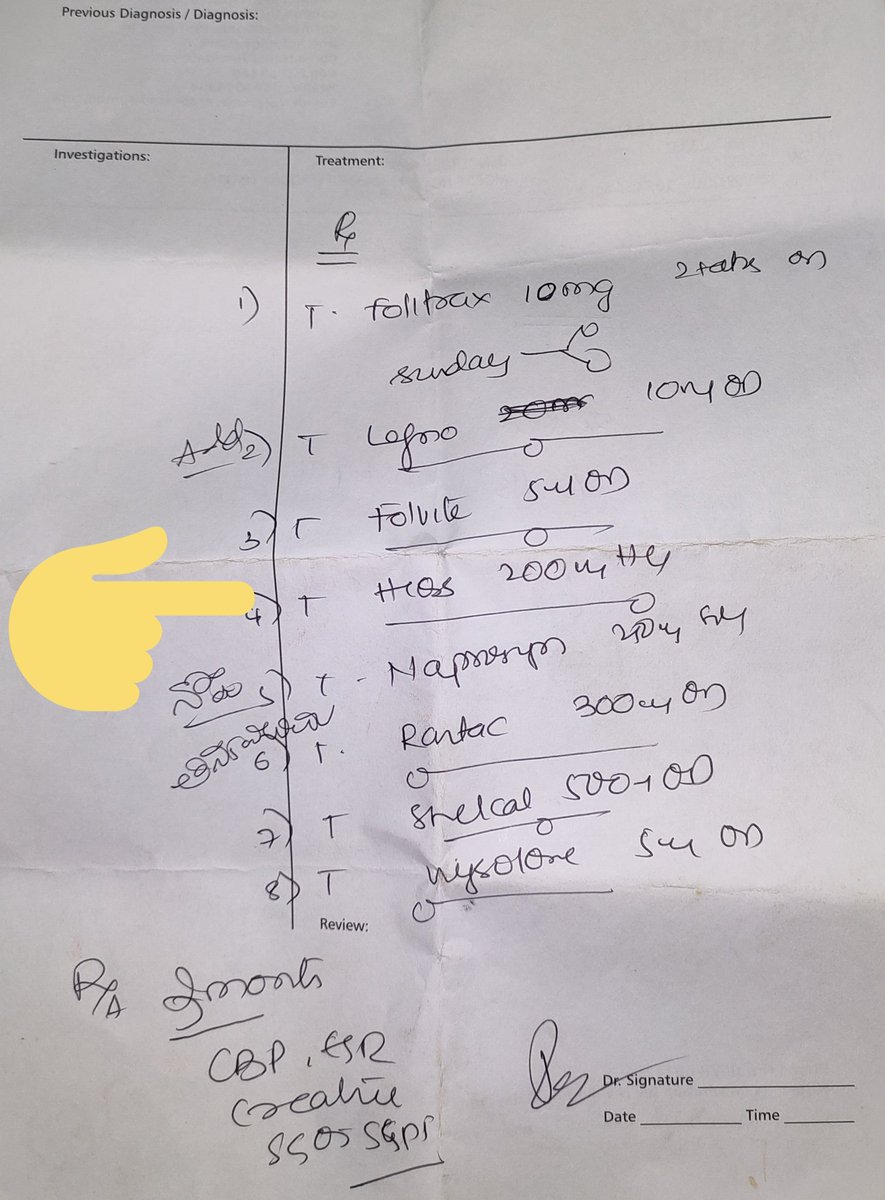 Previous Diagnosis / Diagnosis:
Investigations:
Treatment:
Rx
1) T. Folitrax 10mg 2 tabs on
Sunday
Add 2) T Lefno 10mg OD
3) T Folvite 5mg OD
4) T HCQS 200mg
5) T. Naprosyn
6) T. Rantac 300mg OD
7) T Shelcal 500 OD
8) T Wysolone 5mg OD
Review:
R/A months
CBP, ESR
Creatine
SGOT SGPT
Dr. Signature
Date Time